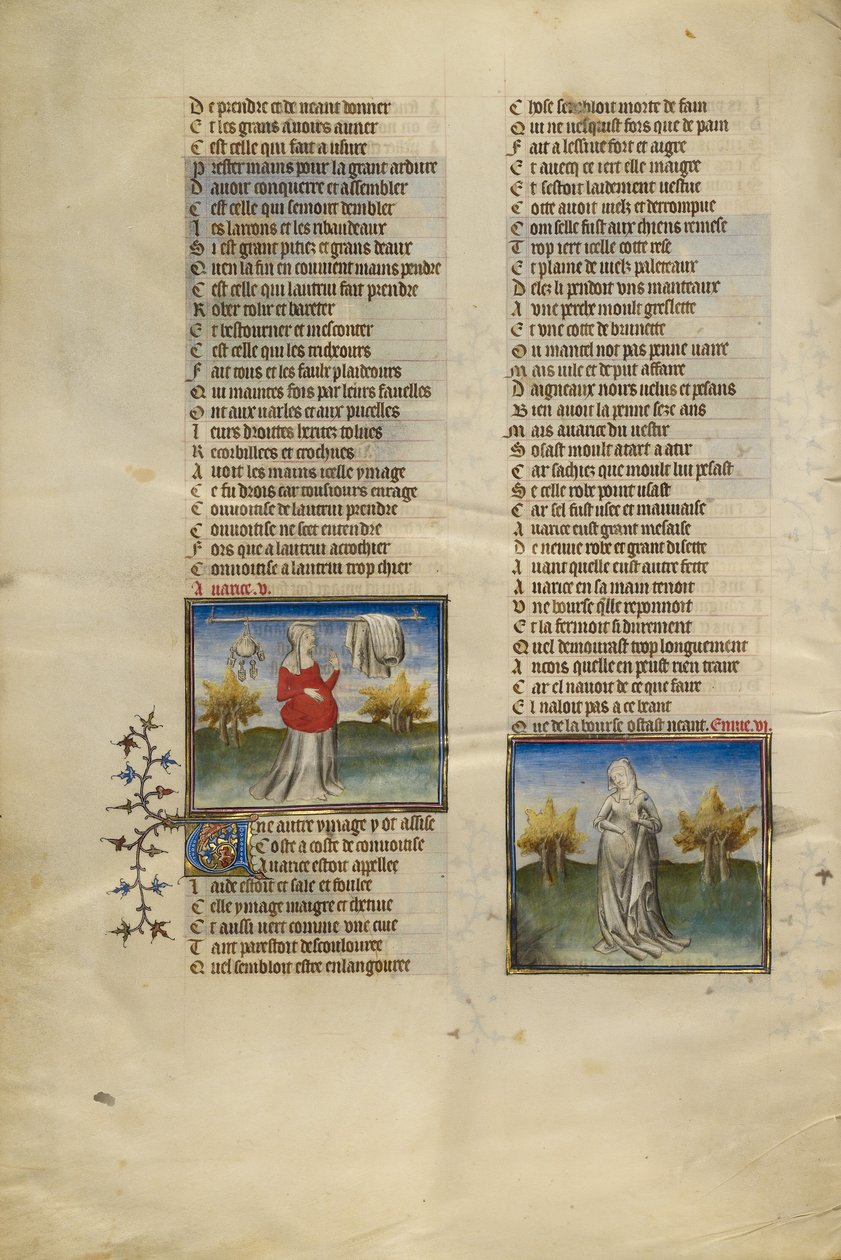 De prendre et de neant donner
Et les grans avoirs auner
C est celle qui fait a usure
Prester mains pour la grant ardure
D avoir conquerre et assembler
C est celle qui semont dembler
Les larrons et les ribaudeaux
Si est grant pitiez et grans deaux
Quen la fin en convient mains pendre
C est celle qui lautrui fait prendre
Rober tolir et bareter
Et bestourner et mesconter
C est celle qui les tricheours
Fait tous et les faulx plaideours
Qui maintes fois par leurs favelles
Ont aux varles et aux pucelles
Leurs droittes heritez tolues
Recorbillees et crochues
Avoit les mains icelle ymage
Ce fu drois car tousiours enrage
Convoitise de lautrui prendre
Convoitise ne scet entendre
Fors que a lautrui acrochier
Convoitise a lautrui trop chier
Avarice .v.
Une autre ymage y ot assise
Coste a coste de convoitise
Avarice estoit appellee
Laide estoit et sale et foulee
Celle ymage maigre et chetive
Et aussi vert comme une cive
Tant parestoit descoulouree
Quel sembloit estre enlangouree
Chose sembloit morte de fain
Qui ne vesquist fors que de pain
Fait a lessive fort et aigre
Et avecq ce iert elle maigre
Et sestoit laidement vestue
Cotte avoit vielz et derrompue
Com selle fust aux chiens remese
Trop iert icelle cotte rese
Et plaine de vielz paleteaux
Delez li pendoit uns manteaux
A une perche moult greslette
Et une cotte de brunette
Ou mantel not pas penne vaire
Mais vile et de put affaire
Daigneaux noirs velus et pesans
Bien avoit la penne seze ans
Mais avarice du vestir
Sosast moult a tart a atir
Car sachiez que moult lui pesast
Se celle robe point usast
Car sel fust usee et mauvaise
Avarice eust grant mesaise
De neuve robe et grant disette
Avant quelle eust autre fette
Avarice en sa main tenoit
Une bourse qlle reponnoit
Et la fermoit si durement
Quel demourast trop longuement
Ancois quelle en peust rien traire
Car el navoit de ce que faire
El naloit pas a ce beant
Que de la bourse ostast neant. Envie .vi.